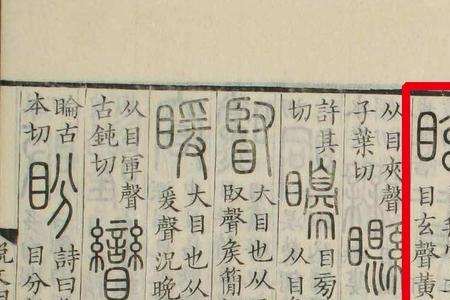 眩
目玄聲黃
从目夾聲
子葉切
許其
切
矏
目旁
从目
大目也从
臤聲侯簡
大目也从
爰聲況晚
从目軍聲
古鈍切
矕
睔古
本切
盼
詩曰
目分